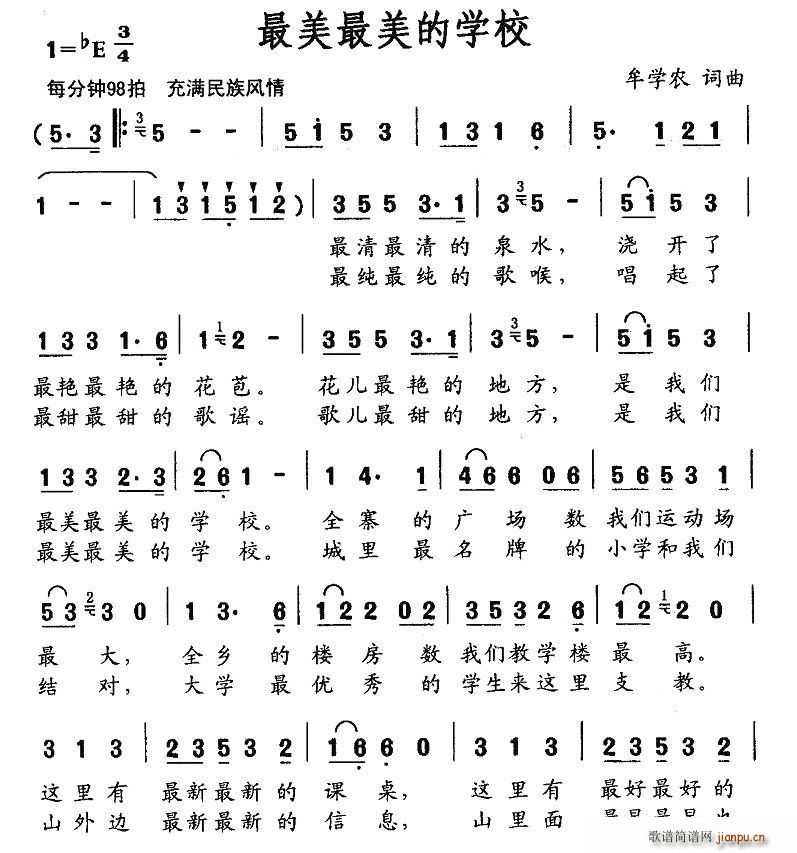 最美最美的学校
1=♭E 3/4
每分钟98拍 充满民族风情
牟学农 词曲
(5· 3 ‖: 3 5 - - | 5 i 5 3 | 1 3 1 6 | 5· 1 2 1 |
1 - - | 1 3 1 5 1 2 ) | 3 5 5 3· 1 | 3 5 - | 5 i 5 3 |
最清最清的泉水, 浇开了
最纯最纯的歌喉, 唱起了
1 3 3 1· 6 | 1 1 2 - | 3 5 5 3· 1 | 3 3 5 - | 5 i 5 3 |
最艳最艳的花苞。 花儿最艳的地方, 是我们
最甜最甜的歌谣。 歌儿最甜的地方, 是我们
1 3 3 2· 3 | 2 6 1 - | 1 4· 1 | 4 6 6 0 6 | 5 6 5 3 1 |
最美最美的学校。 全寨的广场数我们运动场
最美最美的学校。 城里最名牌的小学和我们
5 3 2 3 0 | 1 3· 6 | 1 2 2 0 2 | 3 5 3 2 6 | 1 2 1 2 0 |
最大, 全乡的楼房数我们教学楼最高。
结对, 大学最优秀的学生来这里支教。
3 1 3 | 2 3 5 3 2 | 1 6 6 0 | 3 1 3 | 2 3 5 3 2 |
这里有 最新最新的课桌, 这里有 最好最好的
山外边 最新最新的信息, 山里面
歌谱简谱网
jianpu.cn